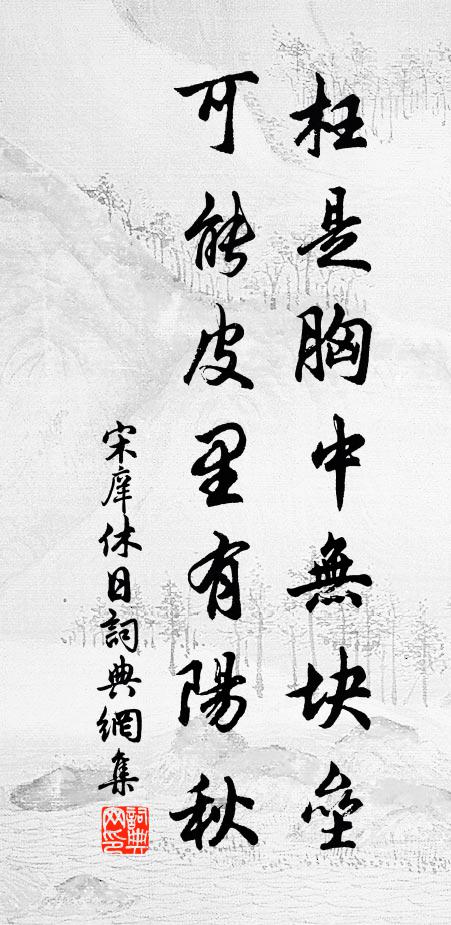 枉是胸中無块壘
可能皮里有陽秋
宋庠休日詞典網集
詞典网印